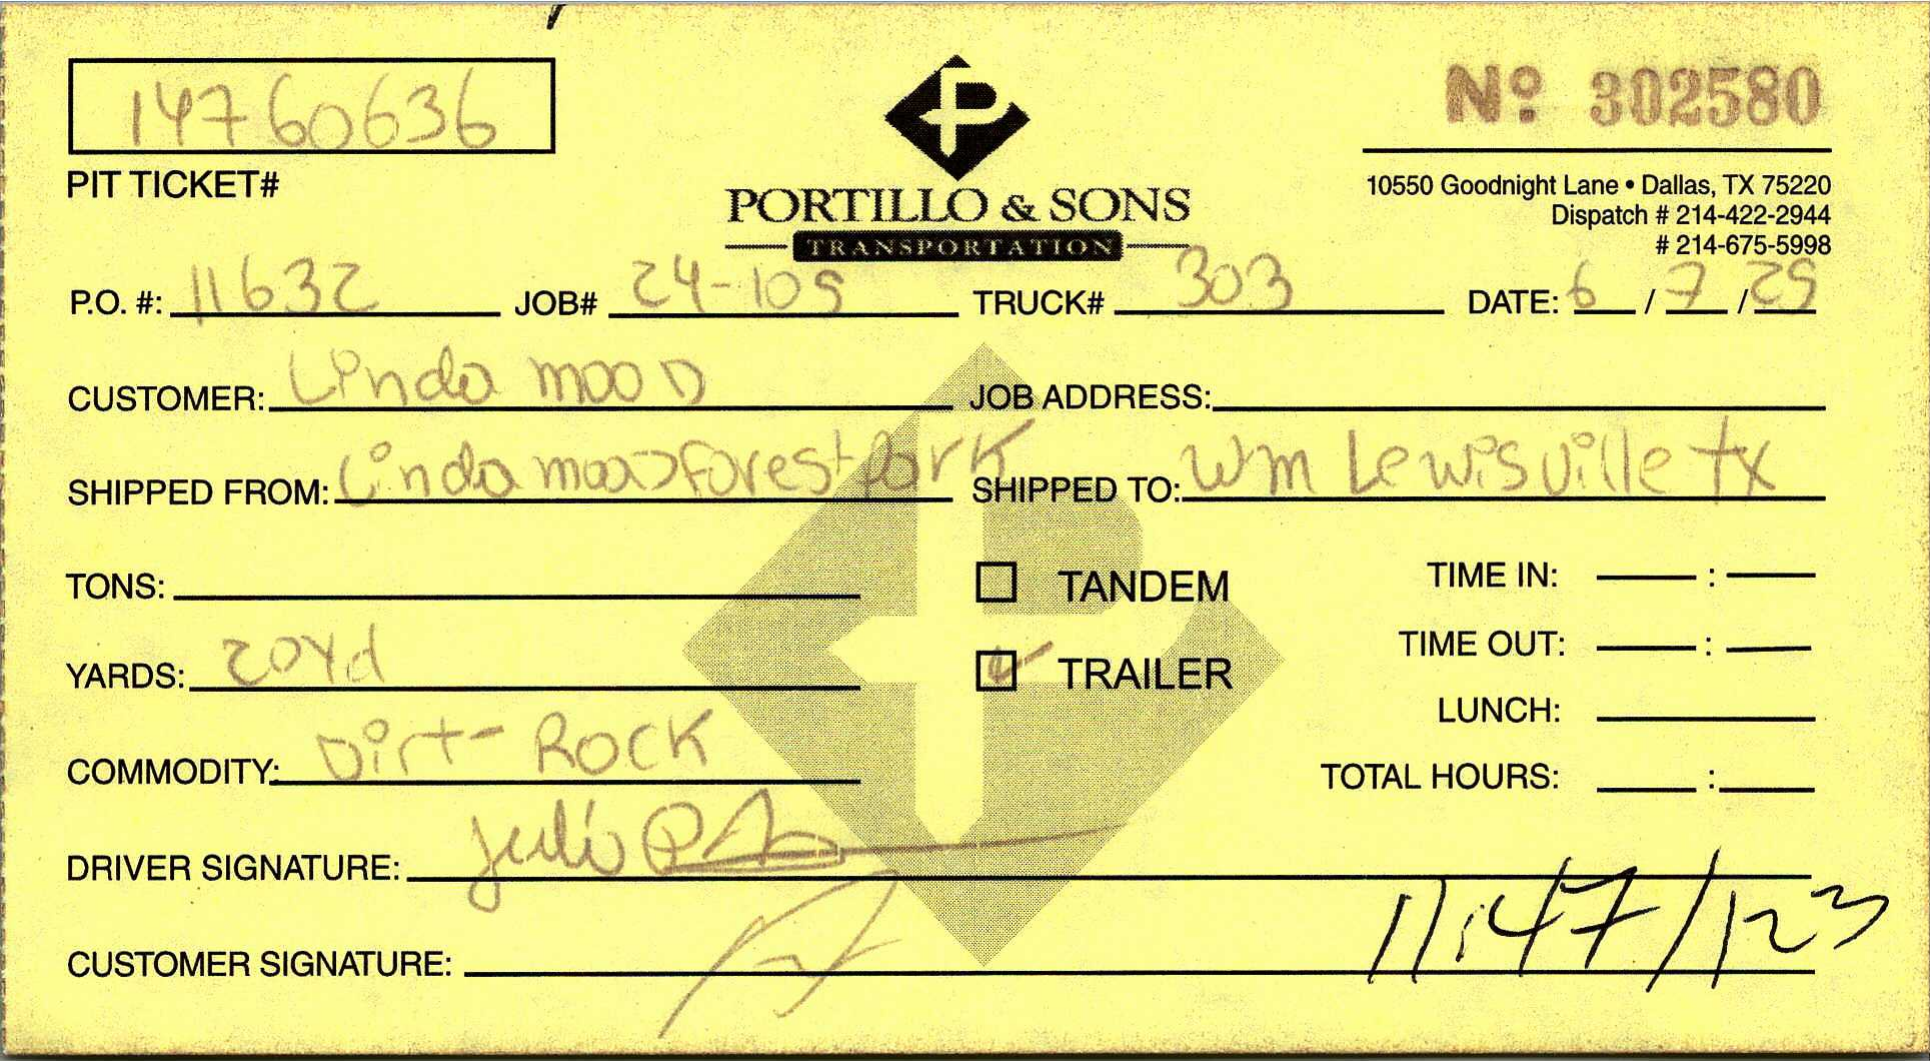 14760636
PIT TICKET#
PORTILLO & SONS
TRANSPORTATION
Nº 302580
10550 Goodnight Lane • Dallas, TX 75220
Dispatch # 214-422-2944
# 214-675-5998
P.O. #: 11632 JOB# 24-105 TRUCK# 303 DATE: 6 / 7 / 25
CUSTOMER: Linda mood JOB ADDRESS:
SHIPPED FROM: Linda mood forest park SHIPPED TO: Wm Lewisville tx
TONS: TANDEM TIME IN: :
YARDS: 20yd TRAILER TIME OUT: :
LUNCH:
COMMODITY: Dirt- ROCK TOTAL HOURS: :
DRIVER SIGNATURE: Julio
CUSTOMER SIGNATURE: 11:47/123